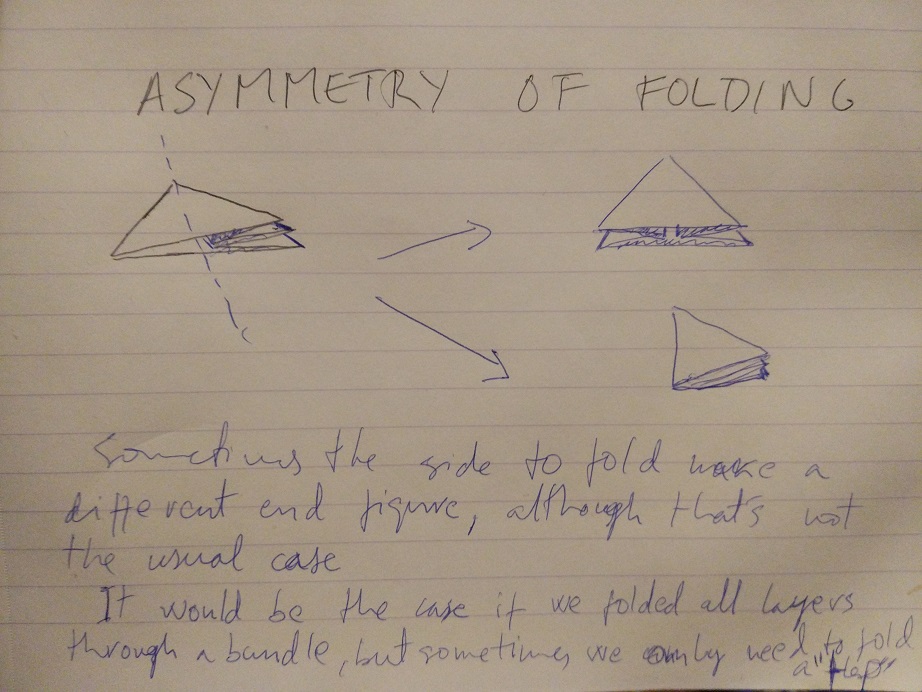 ASYMMETRY OF FOLDING
Sometimes the side to fold make a
different end figure, although that's not
the usual case
It would be the case if we folded all layers
through a bundle, but sometimes we only need to fold
a "flap"